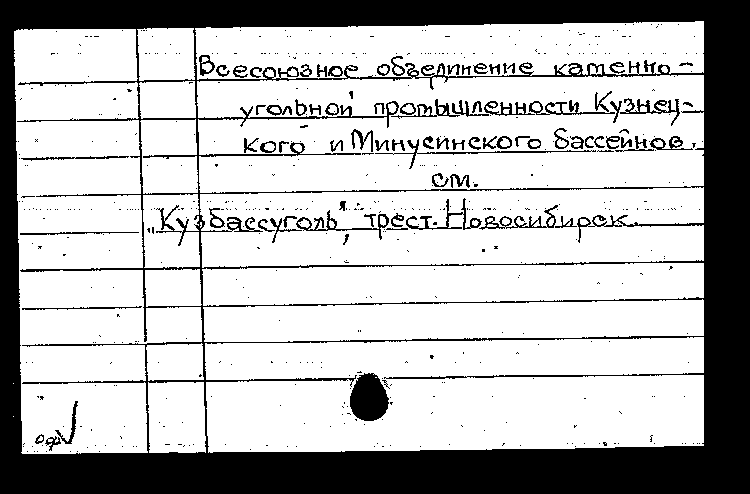 Всесоюзное объединение каменно-
угольной промышленности Кузнец-
кого и Минусинского бассейнов.
см.
„Кузбассуголь", трест. Новосибирск.